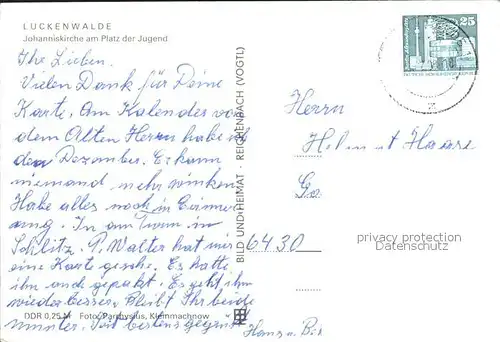 LUCKENWALDE
Johanniskirche am Platz der Jugend
Ihr Lieben.
Vielen Dank für Deine
Karte, Am Kalender von
dem Alten Herrn habe
den Dezember. Er kann
niemand mehr winken
Habe alles noch in Erinner
ung. In am Turm in
Schlitz. P. Walter hat mir
eine Karte gesch. Es hatte
ihn auch gepakt. Es geht ihm
wieder besser. Bleibt Ihr beide
munter. Seid bestens gegrüßt
Hans u.
DDR 0,25 M Foto: Parthysius, Kleinmachnow
BILD UND HEIMAT · REICHENBACH (VOGTL)
25
Herrn
Helmut Haase
6430
privacy protection
Datenschutz